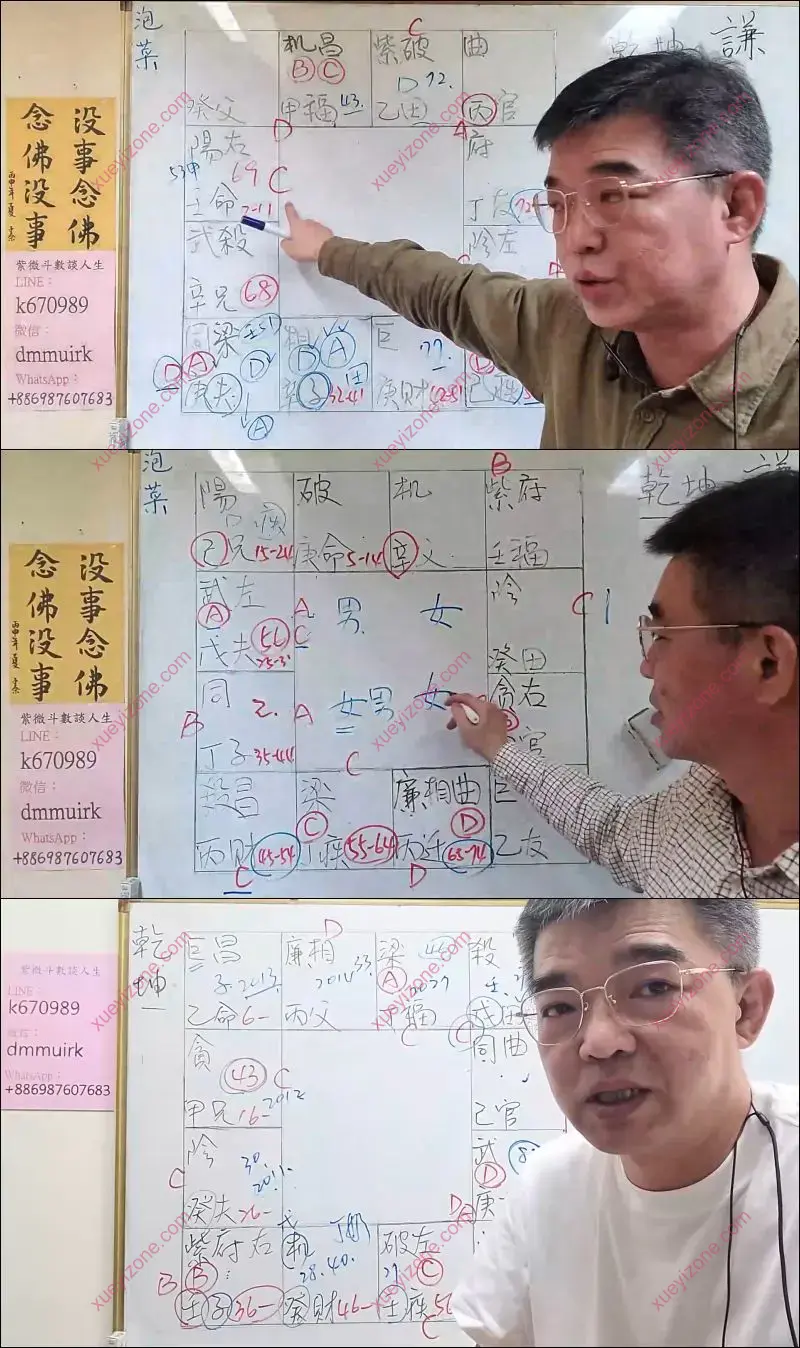 泡菜
机昌
B C
紫破
C
D 72.
曲
乾坤
謙
癸父
甲福 43.
乙田
丙官
D
A
陽右
53甲
69
C
壬命 2-11
府
丁友
武殺
辛兄 68
陰左
同梁
D A D
庚夫
A
相
D A
辛子 32-41
田
巨
77.
庚財
己疾
没事念佛
念佛没事
紫微斗數談人生
LINE：
k670989
微信：
dmmuirk
WhatsApp：
+886987607683
泡菜
陽
己兄 15-24
破
庚命 5-14
机
辛父
紫府
B
壬福
乾坤
謙
武左
A
戊夫 56
A
C
男 女
陰
癸田
C
同
2.
丁子 35-44
B
A
女 男 女
C
貪右
官
殺昌
丙財 45-54
C
梁
C
丁疾 55-64
廉相曲
D
丙迁 65-74
D
巨
乙友
没事念佛
念佛没事
紫微斗數談人生
LINE：
k670989
微信：
dmmuirk
WhatsApp：
+886987607683
乾坤
巨昌
子 2013.
乙命 6-
廉相
D
2014 33.
丙父
梁
A
福
C
殺
戊田
C
貪
43 C
甲兄 16-2012
同曲
己官
陰
30.
2011.
癸夫 26-
C
武
D
庚
D
A
紫府右
B
壬子 36-
B
机
28.40.
癸財 46-
破左
C
壬疾 56
C
紫微斗數談人生
LINE：
k670989
微信：
dmmuirk
WhatsApp：
+886987607683
xueyizone.com